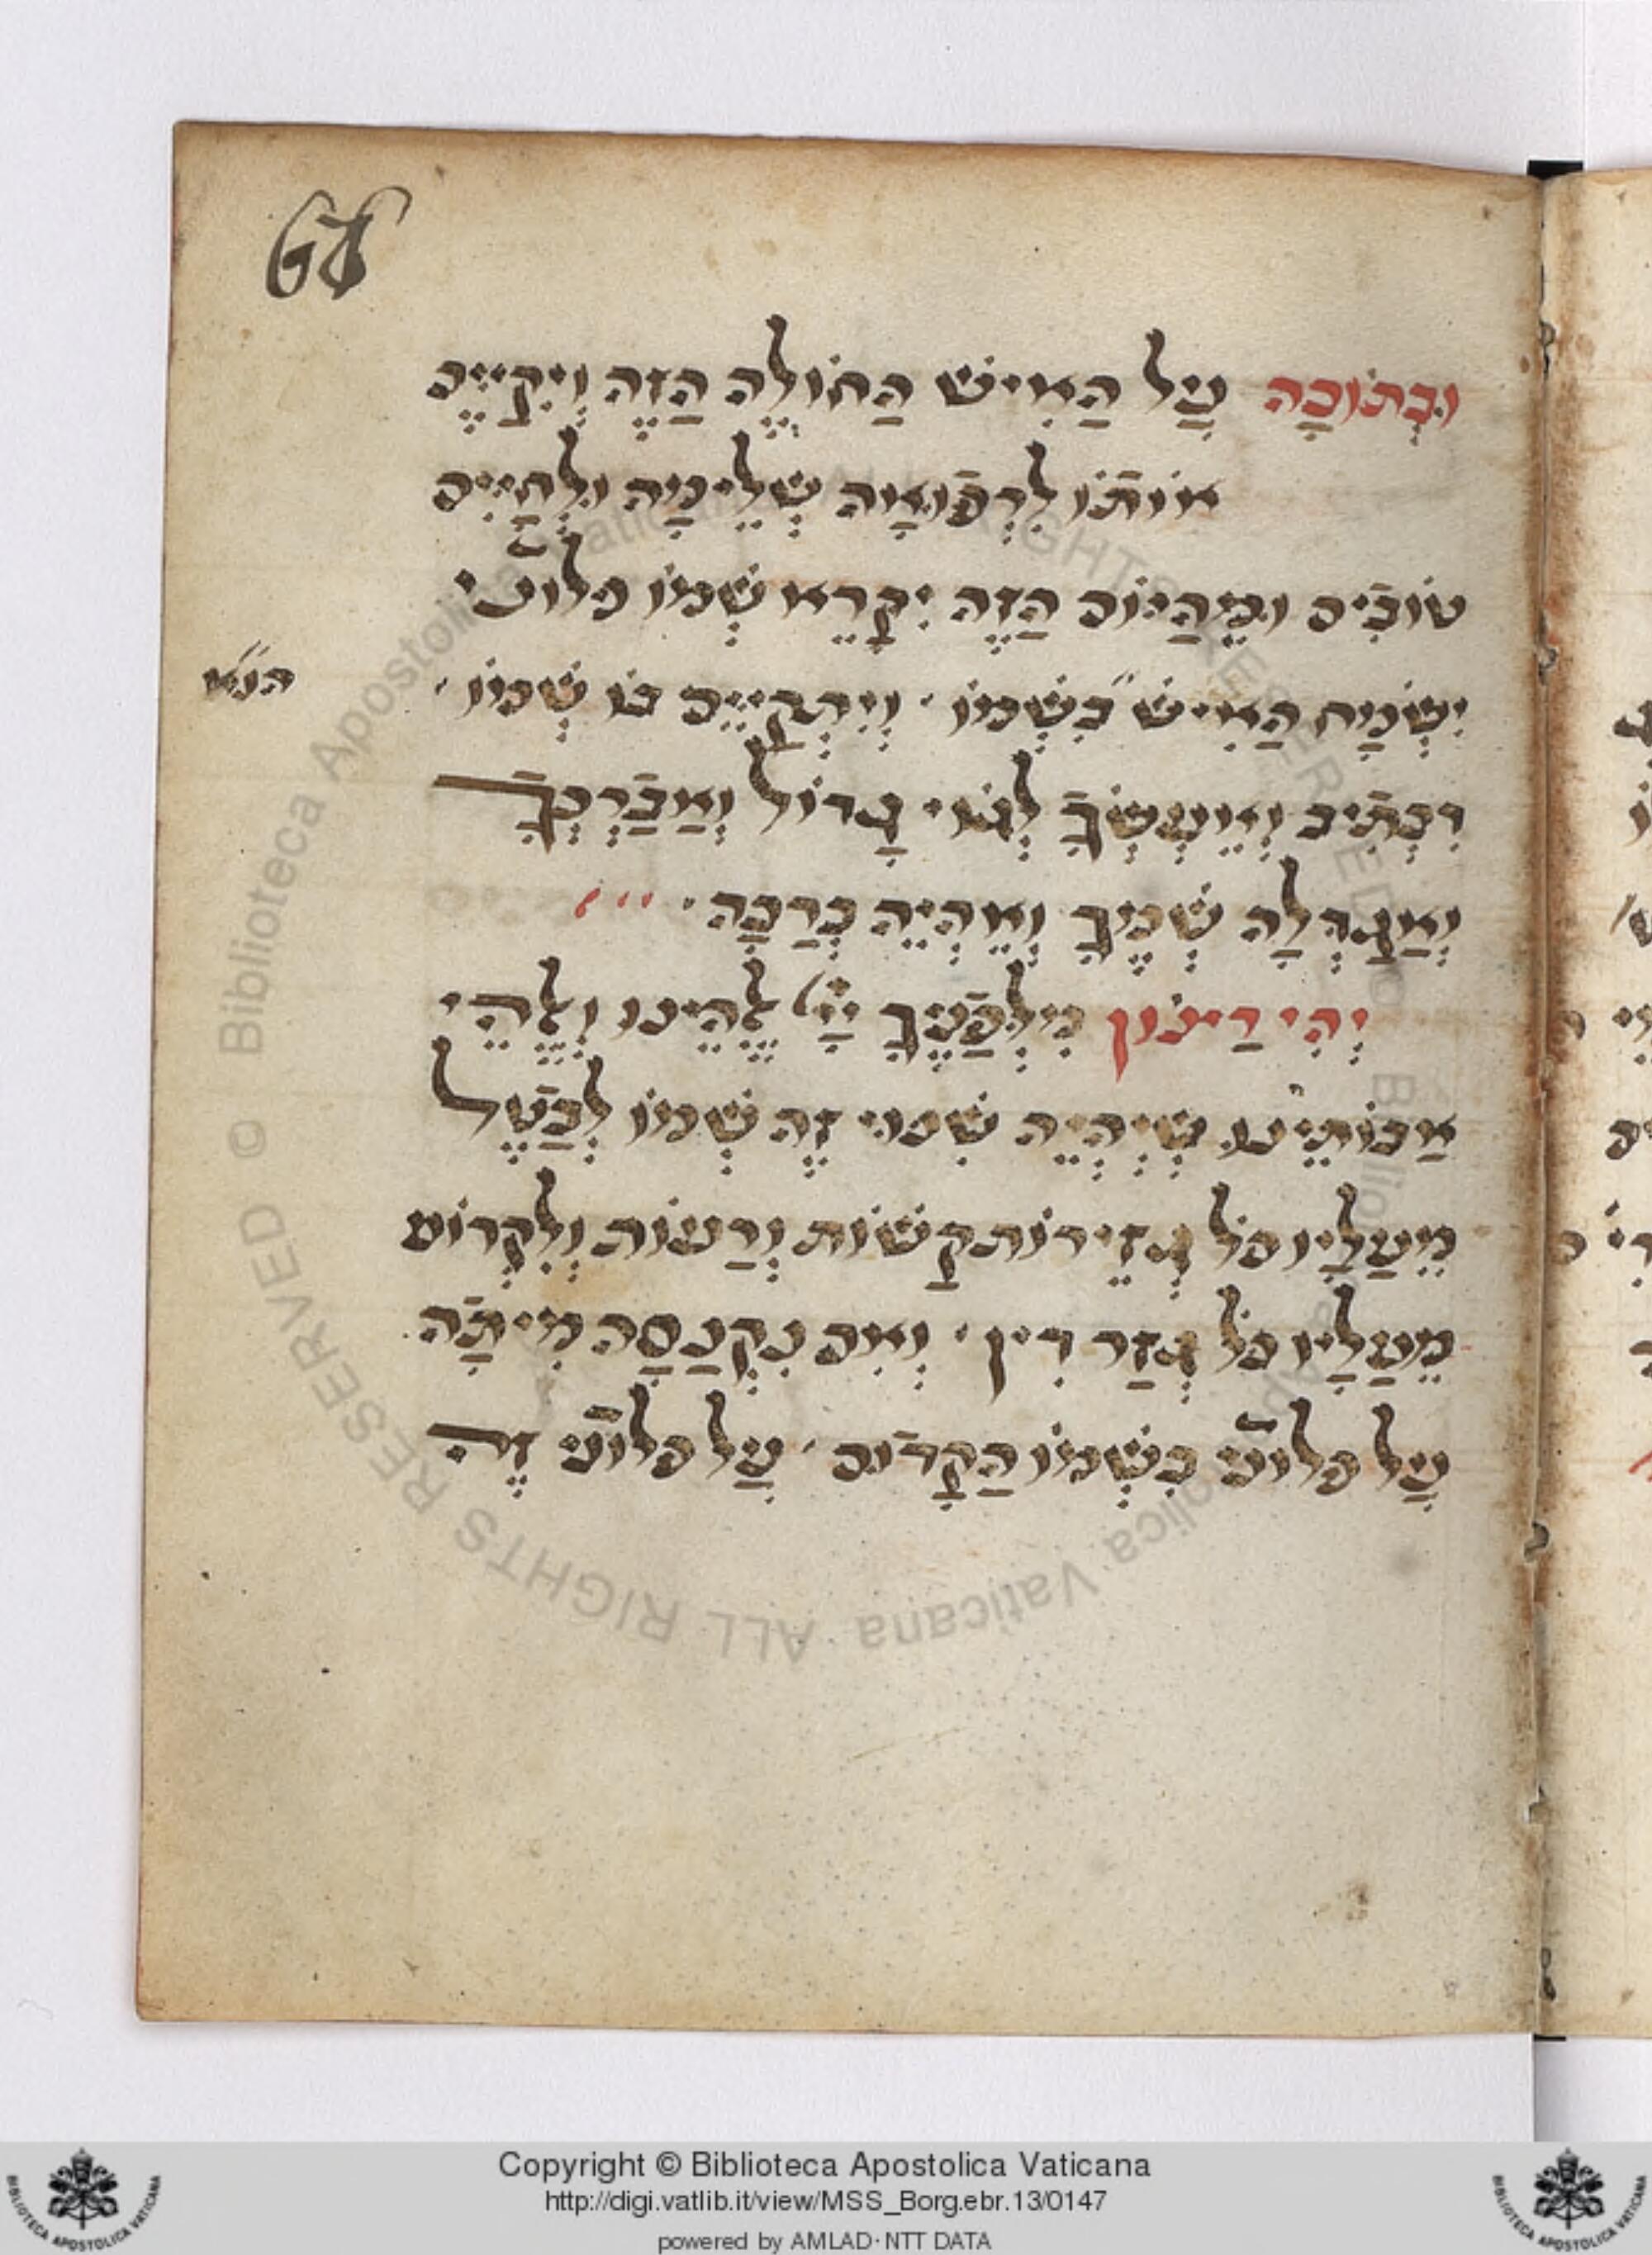 68
וּבְתוֹכָהּ עַל הַאִישׁ הַחוֹלֶה הַזֶה וְיִקַיֶים
אוֹתוֹ לִרְפוּאָה שְׁלֵימָה וּלְחַיִים
טוֹבִים וּמֵהַיוֹם הַזֶה יִקָרֵא שְׁמוֹ פלוני
יִשְׂמַח הַאִישׁ בִשְׁמוֹ · וְיִתְקַיֵים בּוֹ שְׁמוֹ ·
דִכְתִיב וְאֵעֶשְׂךָ לְגוֹי גָדוֹל וַאֲבָרֶכְךָ
וַאֲגַדְלָה שְׁמֶךָ וֶאֱהְיֵה בְרָכָה ·
יְהִי רַצוֹן מִלְפָנֶיךָ יְיָ אֱלֹהֵינוּ וֵאלֹהֵי
אֲבוֹתֵינוּ שְׁיְהְיֶה שִׁנוּי זֶה שְׁמוֹ לְבַטֶל
מֵעָלָיו כל גְזֵירוֹת קָשׁוֹת וְרַעוֹת וְלִקְרוֹעַ
מֵעָלָיו כל גְזַר דִין · וְאִם נִקְנַסָה מִיתָה
עַל פלוני בִשְׁמוֹ הַקָדוֹם · עַל פלוני זֶה
Copyright © Biblioteca Apostolica Vaticana
http://digi.vatlib.it/view/MSS_Borg.ebr.13/0147
powered by AMLAD·NTT DATA